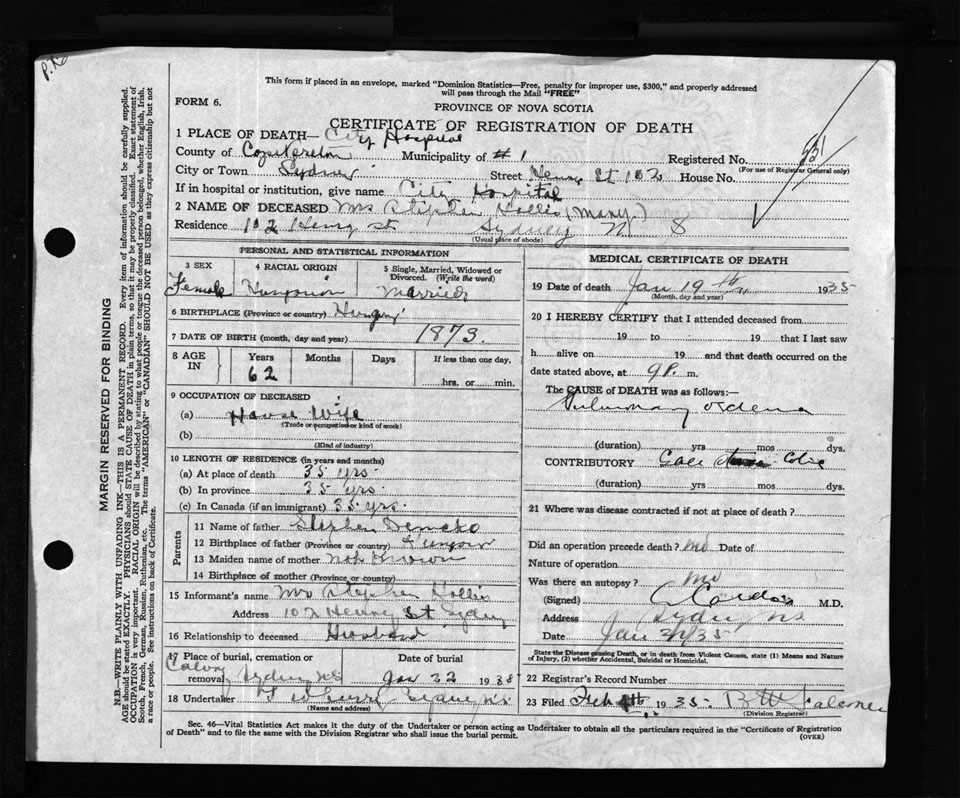 This form if placed in an envelope, marked "Dominion Statistics—Free, penalty for improper use, $300," and properly addressed
will pass through the Mail "FREE"
FORM 6.
PROVINCE OF NOVA SCOTIA
CERTIFICATE OF REGISTRATION OF DEATH
1 PLACE OF DEATH— City Hospital
County of Municipality of # 1 Registered No. 551
(For use of Registrar General only)
City or Town Sydney Street Henry St 102 House No.
If in hospital or institution, give name City Hospital
2 NAME OF DECEASED Mrs Stephen Hollis (Mary)
Residence 102 Henry St Sydney N S
(Usual place of abode)
PERSONAL AND STATISTICAL INFORMATION
3 SEX
Female
4 RACIAL ORIGIN
5 Single, Married, Widowed or Divorced. (Write the word)
Married
6 BIRTHPLACE (Province or country)
7 DATE OF BIRTH (month, day and year) 1873.
8 AGE IN
Years Months Days If less than one day,
62 hrs. or min.
9 OCCUPATION OF DECEASED
(a) House Wife
(Trade or occupation or kind of work)
(b)
(Kind of industry)
10 LENGTH OF RESIDENCE (in years and months)
(a) At place of death 35 yrs.
(b) In province 35 yrs.
(c) In Canada (if an immigrant) 35 yrs.
Parents
11 Name of father Stephen
12 Birthplace of father (Province or country)
13 Maiden name of mother not known
14 Birthplace of mother (Province or country)
15 Informant's name Mr Stephen Hollis
Address 102 Henry St Sydney
16 Relationship to deceased Husband
17 Place of burial, cremation or removal, Sydney NS
Date of burial Jan 22 1935
18 Undertaker Sydney N.S.
(Name and address)
MEDICAL CERTIFICATE OF DEATH
19 Date of death Jan 19th 1935
(Month, day and year)
20 I HEREBY CERTIFY that I attended deceased from
19 to 19 that I last saw
h alive on 19 and that death occurred on
date stated above, at 9 P. m.
The CAUSE of DEATH was as follows:
Pulmonary
(duration) yrs mos dys.
CONTRIBUTORY Gall Colic
(duration) yrs mos dys.
21 Where was disease contracted if not at place of death?
Did an operation precede death? no Date of
Nature of operation
Was there an autopsy? no
(Signed) M.D.
Address Sydney NS
Date Jan /35
State the Disease causing Death, or in death from Violent Causes, state (1) Means and Nature
of Injury, (2) whether Accidental, Suicidal or Homicidal.
22 Registrar's Record Number
23 Filed Feb 1935
(Division Registrar)
Sec. 46—Vital Statistics Act makes it the duty of the Undertaker or person acting as Undertaker to obtain all the particulars required in the "Certificate of Registration
of Death" and to file the same with the Division Registrar who shall issue the burial permit.
(OVER)
MARGIN RESERVED FOR BINDING
N.B.—WRITE PLAINLY WITH UNFADING INK—THIS IS A PERMANENT RECORD. Every item of information should be carefully supplied.
AGE should be stated EXACTLY. PHYSICIANS should STATE CAUSE OF DEATH in plain terms, so that it may be properly classified. Exact statement of
OCCUPATION is very important. RACIAL ORIGIN will be described by stating to what people or tongue the deceased person belonged, whether English, Irish,
Scotch, French, German, Russian, Ruthenian, etc. The terms "AMERICAN" or "CANADIAN" SHOULD NOT BE USED as they express citizenship but not
a race or people. See instructions on back of Certificate.